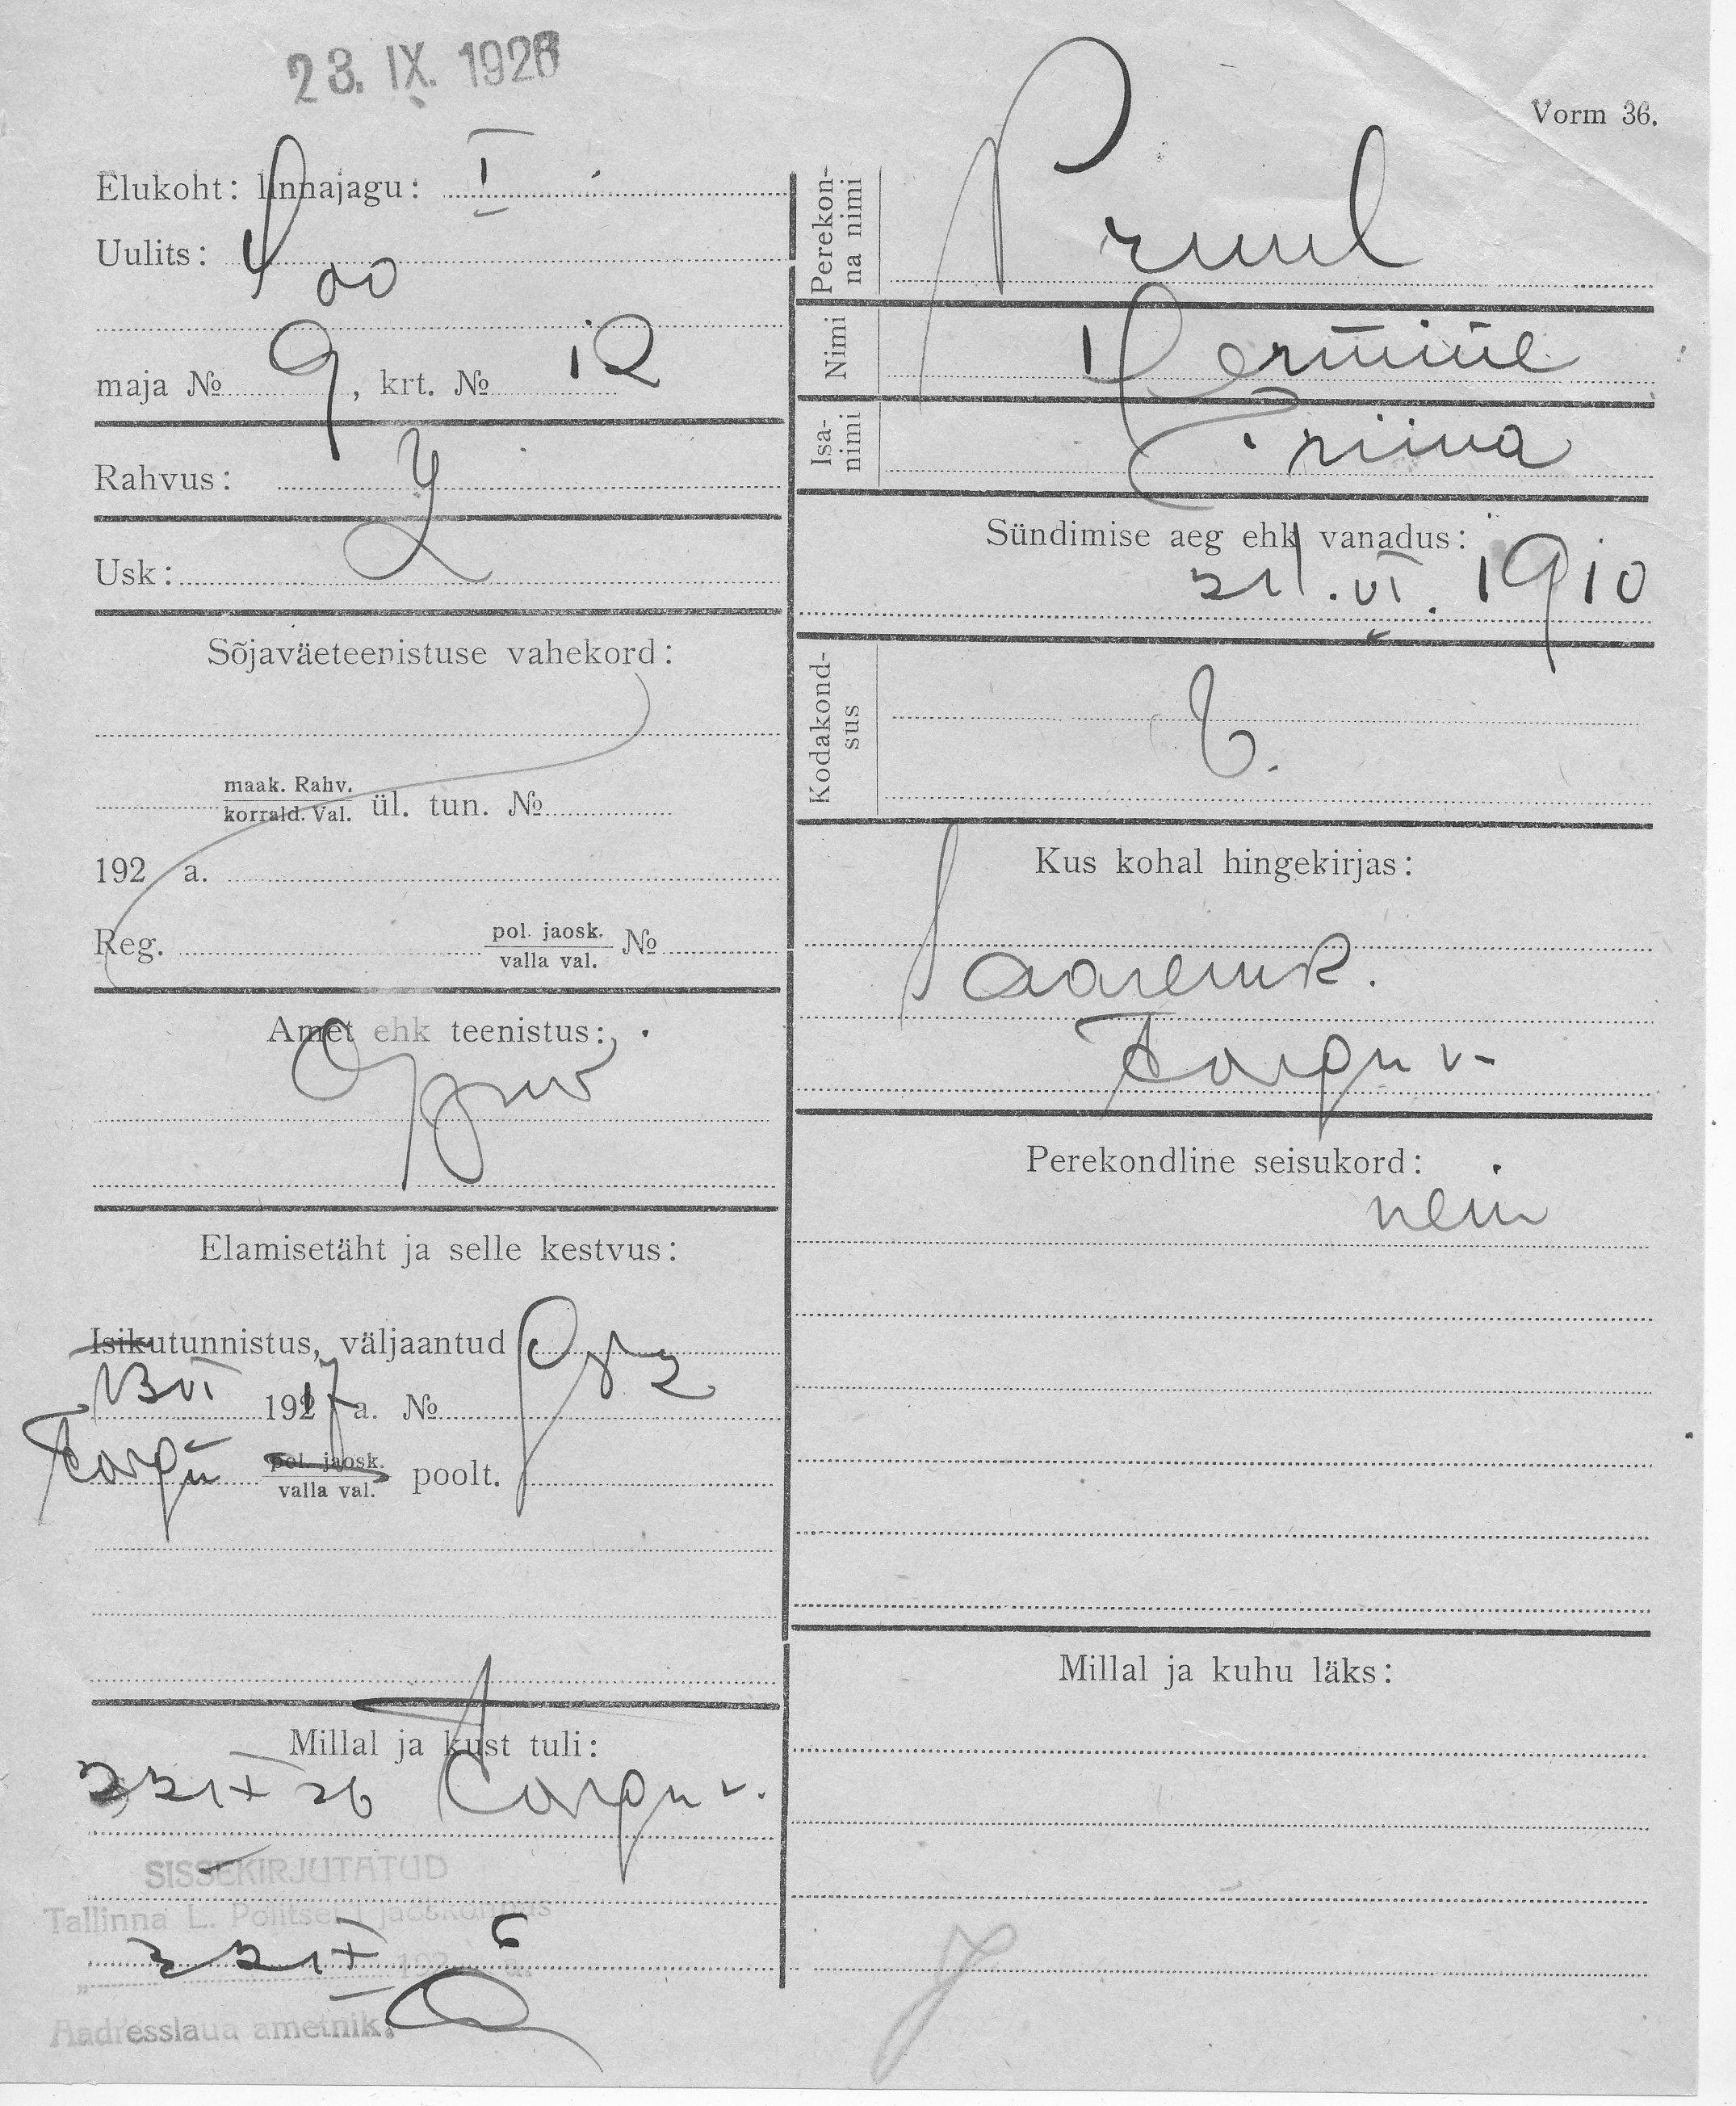 23. IX. 1926
Vorm 36.
Elukoht: linnajagu: I
Uulits: Soo
maja № 9, krt. № 12
Rahvus:
Usk: L
Sõjaväeteenistuse vahekord:
maak. Rahv.
korrald. Val. ül. tun. №
192 a.
Reg. pol. jaosk. №
valla val.
Amet ehk teenistus:
Elamisetäht ja selle kestvus:
Isikutunnistus, väljaantud
VI 1917 a. №
Torgu pol. jaosk. poolt.
valla val.
Millal ja kust tuli:
22 IX 26 Torgu v.
SISSEKIRJUTATUD
Tallinna L. Politsei I jaoskonnas
22 IX 192 6 a.
Aadresslaua ametnik:
Perekon-
na nimi Pruul
Nimi Hermine
Isa-
nimi Priidu
Sündimise aeg ehk vanadus:
21. VI. 1910
Kodakond-
sus E.
Kus kohal hingekirjas:
Saarem.
Torgu v.
Perekondline seisukord:
neiu
Millal ja kuhu läks: